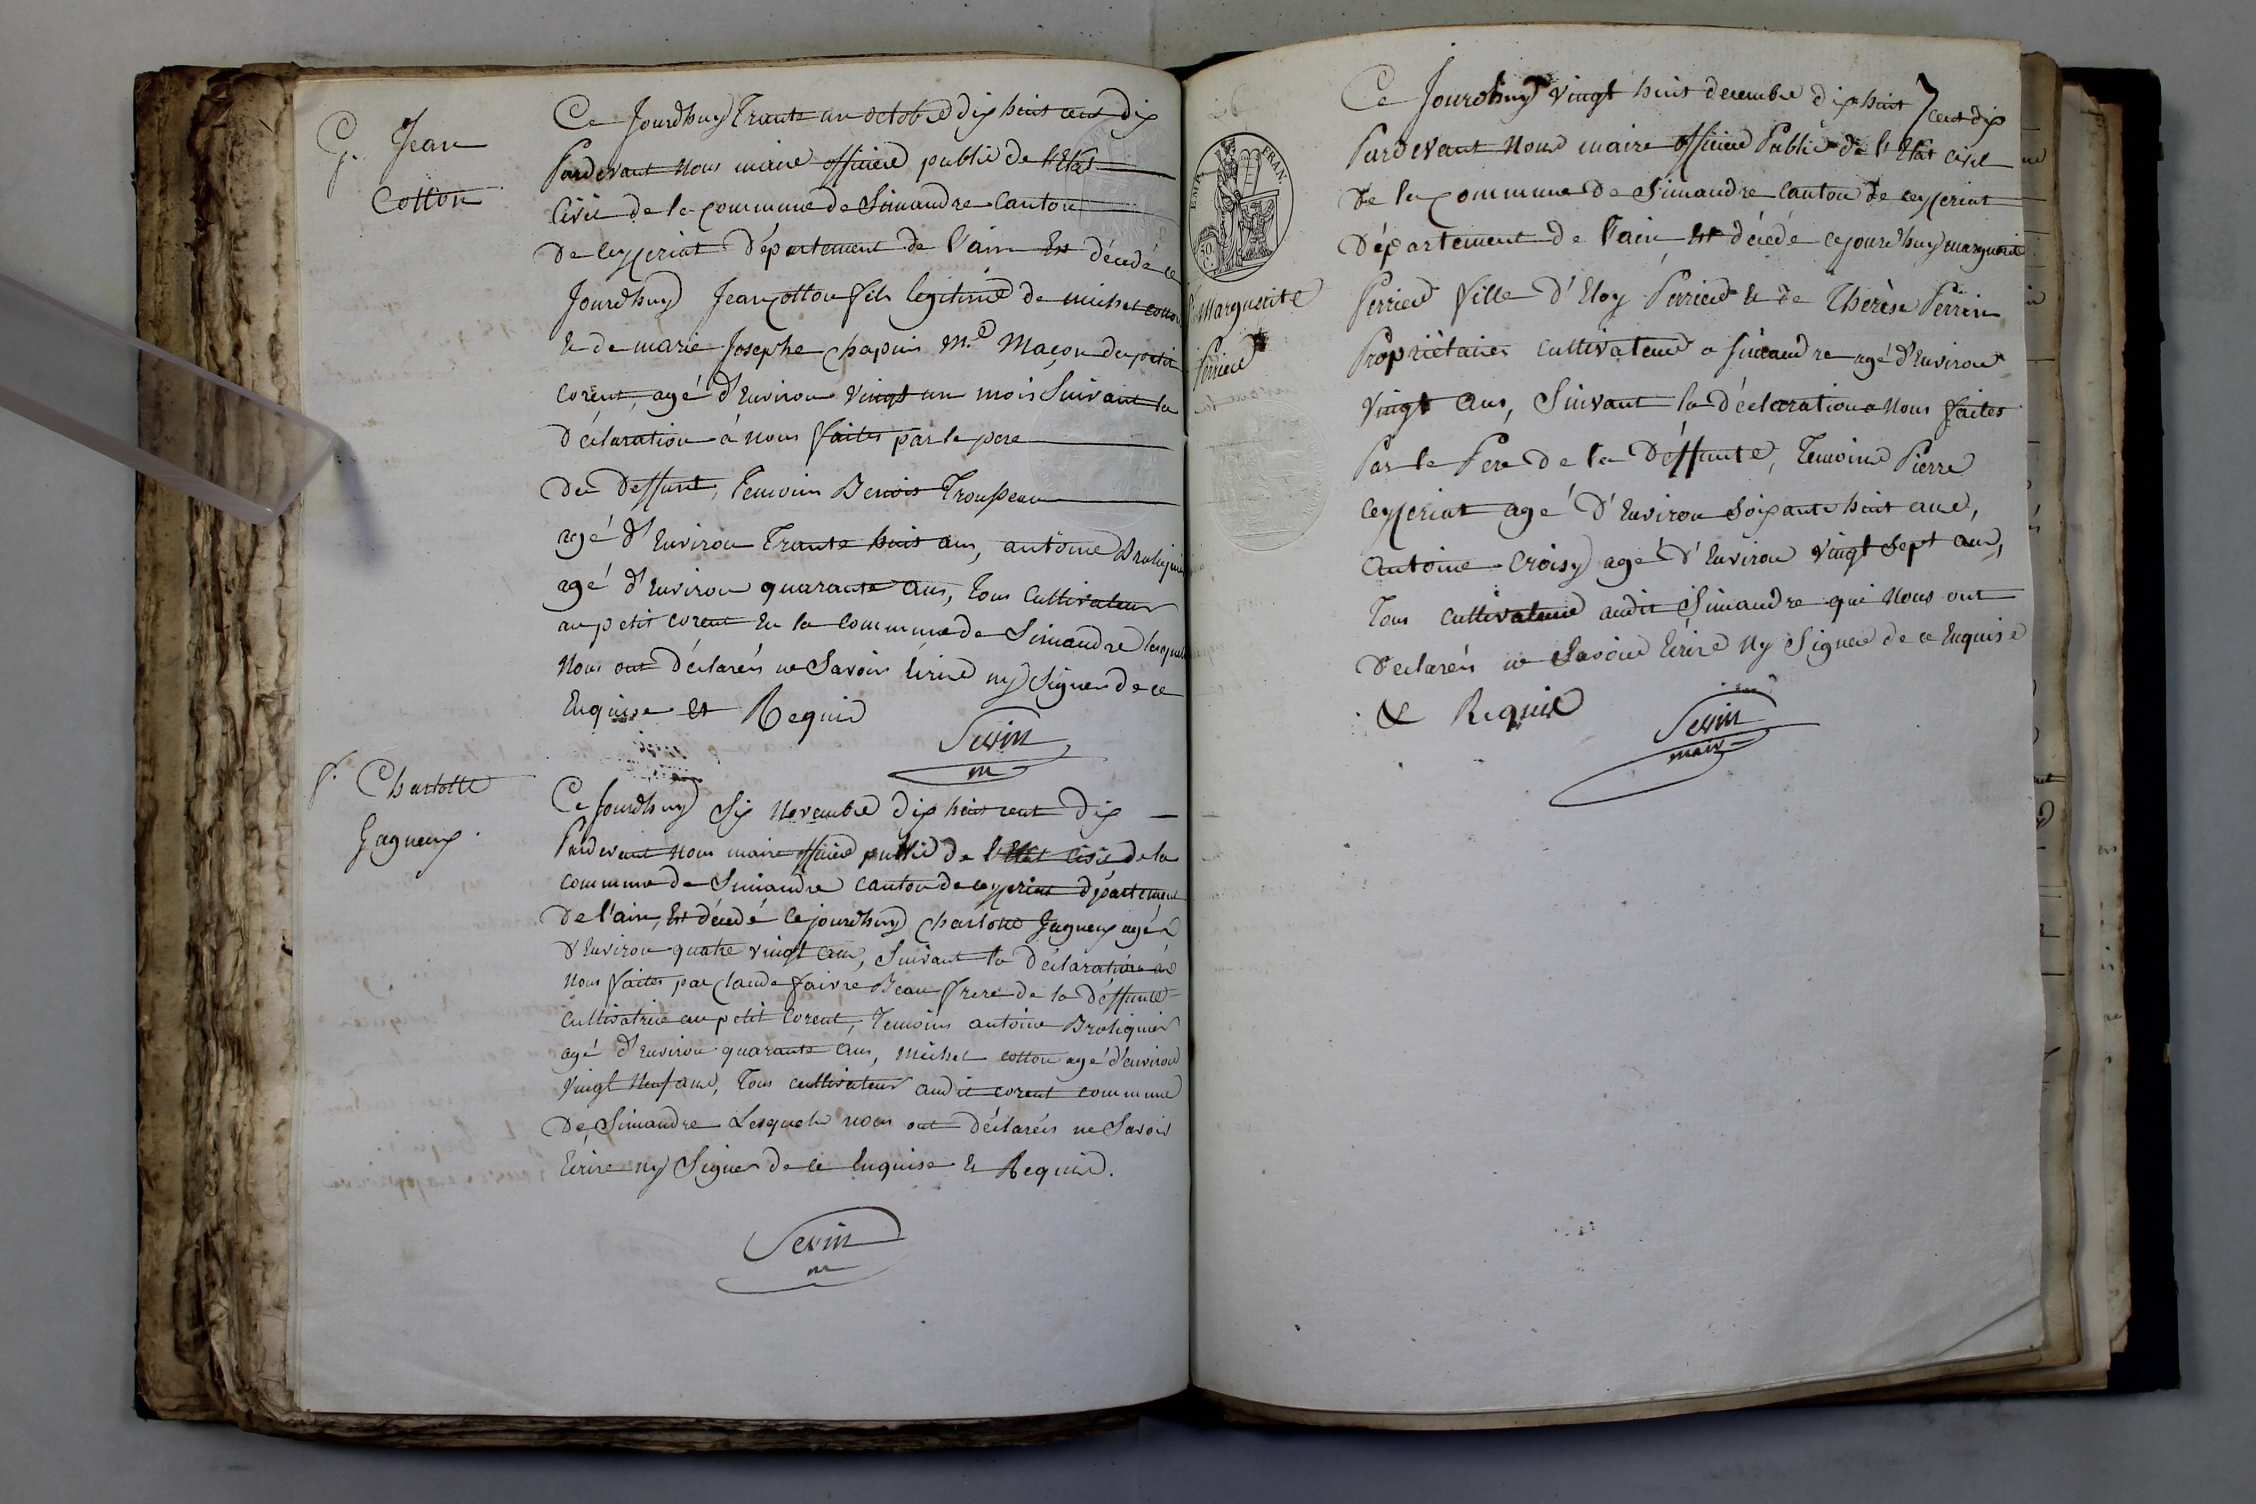 G. Jean
Cotton
Ce Jourdhuy Trante un octobre dix huit cent dix
Pardevant Nous maire officier public de l'Etat
Civil de la commune de Simandre Canton
de Ceyzeriat Département de l'ain Est décédé ce
Jourdhuy Jean Cotton fils legitime de michel cotton
& de marie Josephe Chapuis M.d Maçon du petit
Corent, agé d'Environ vingt un mois Suivant la
déclaration à nous faites par le pere
du deffunt, Temoins Benois Troupeau
agé d'Environ Trante huit ans, antoine Broliquier
agé d'Environ quarante ans, Tous Cultivateur
au petit corent En la Commune de Simandre lesquels
Nous ont déclarés ne Savoir Ecrire ny Signer de ce
Enquise et Requis
Sevin
m
f. Charlotte
Gagneux.
Ce Jourdhuy Six Novembre dix huit cent dix
Pardevant Nous maire officier public de l'Etat Civil de la
commune de Simandre canton de ceyzeriat département
de l'ain, Est décédé ce jourdhuy Charlotte Gagneux agée
d'Environ quatre vingt ans, Suivant la déclaration à
Nous faites par Claude faivre Beau frere de la déffunte
Cultivatrice au petit Corent, Temoins antoine Broliquier
agé d'Environ quarante ans, Michel cotton agé d'environ
vingt Neuf ans, Tous cultivateur audit corent commune
De Simandre Lesquels nous ont déclarés ne Savoir
Ecrire ny Signer de ce Enquise & Requis.
Sevin
m
EMP. FRAN.
Marguerite
Perrier
Ce Jourdhuy vingt huit decembre dix huit cent dix
Pardevant Nous maire officier Public de l'Etat Civil
de la Commune de Simandre Canton de ceyzeriat
Département de l'ain Est décédé cejourd'huy marguerite
Perrier fille d'Eloy Perrier & de Therèse Perrin
Propriètaires cultivateur a simandre agé d'Environ
Vingt ans, Suivant la déclaration a Nous faites
Par le Pere de la Déffunte, Temoins Pierre
Ceyzeriat agé d'Environ Soixante huit ans,
Antoine Croisy agé d'Environ vingt Sept ans,
Tous cultivateur audit Simandre qui Nous ont
Déclarés ne Savoir Ecrire Ny Signer de ce Enquise
& Requis
Sevin
maire